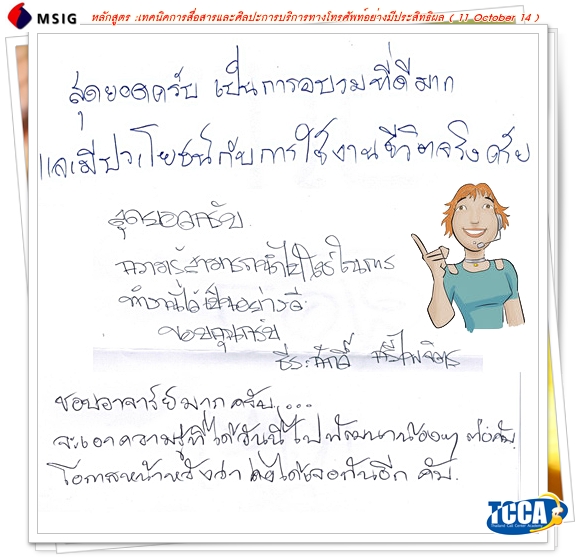 MSIG หลักสูตร :เทคนิคการสื่อสารและศิลปะการบริการทางโทรศัพท์อย่างมีประสิทธิผล ( 11 October 14 )
สุดยอดครับ เป็นการอบรมที่ดีมาก
และมีประโยชน์กับการใช้งานชีวิตจริงด้วย
สุดยอดครับ
ความรู้สามารถนำไปใช้ในการ
ทำงานได้เป็นอย่างดี
ขอบคุณครับ
ธีระศักดิ์
ชอบอาจารย์มากครับ....
จะเอาความรู้ที่ได้วันนี้ไปพัฒนาน้องๆ ต่อคับ.
โอกาสหน้าหวังว่า คงได้เจอกันอีก คับ.
TCCA
Thailand Call Center Academy